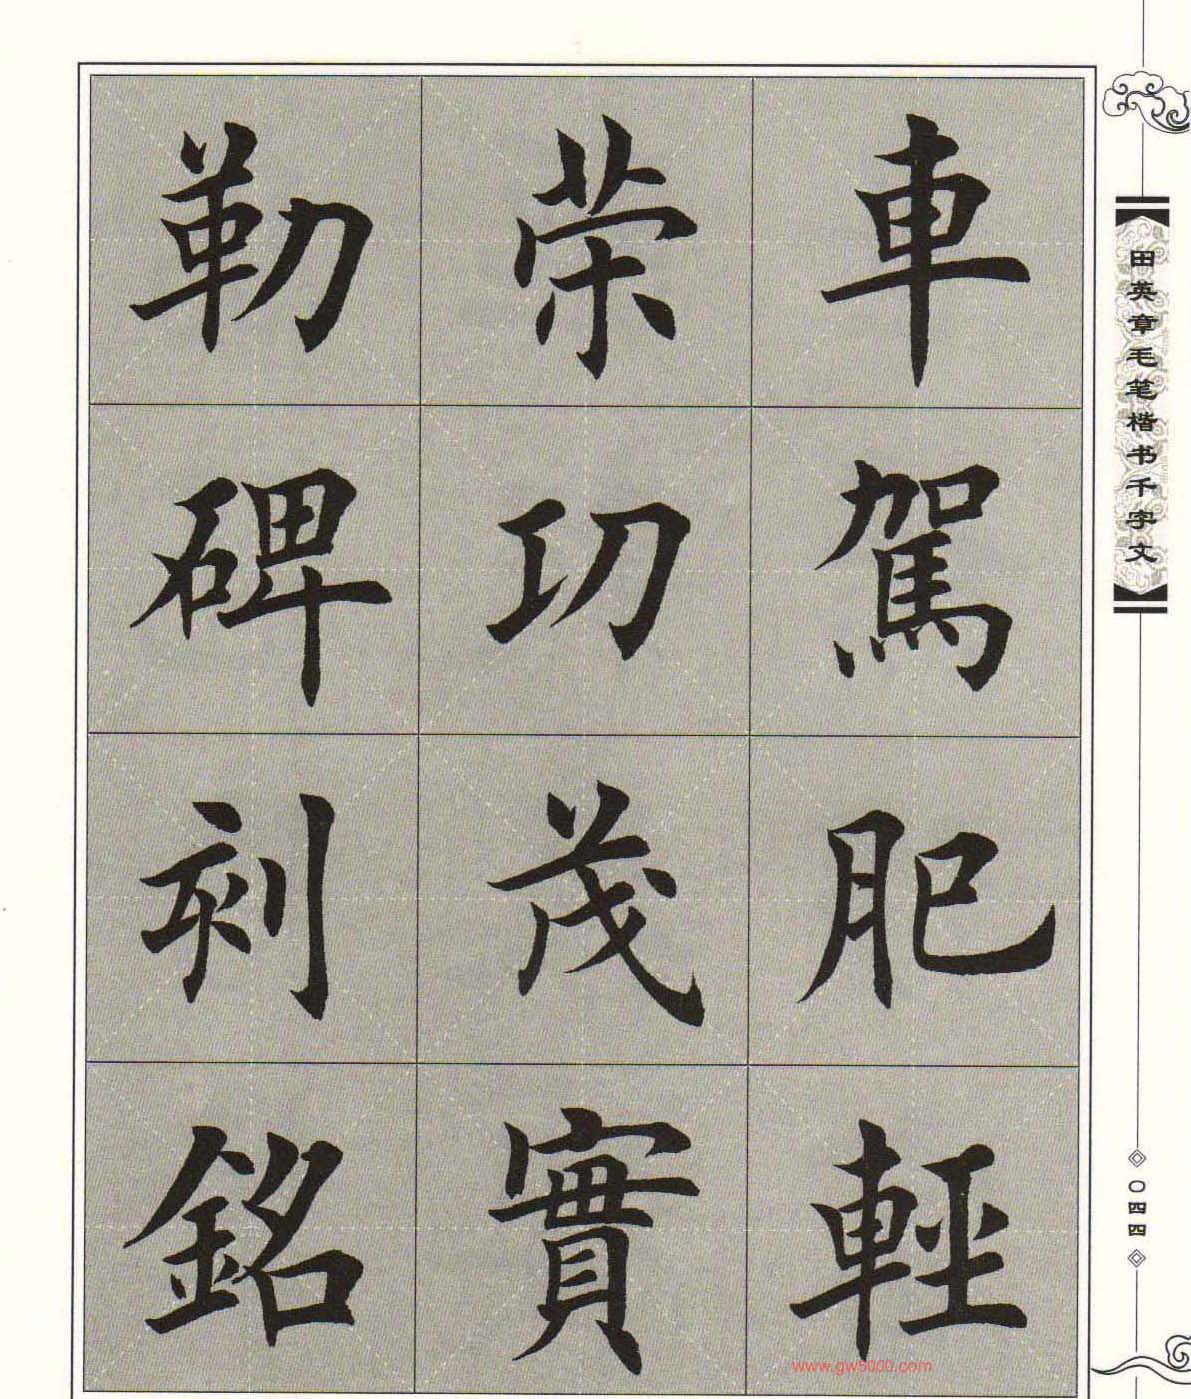 車駕肥輕
荣功茂實
勒碑刻銘
田英章毛笔楷书千字文
〇四四
www.gw5000.com